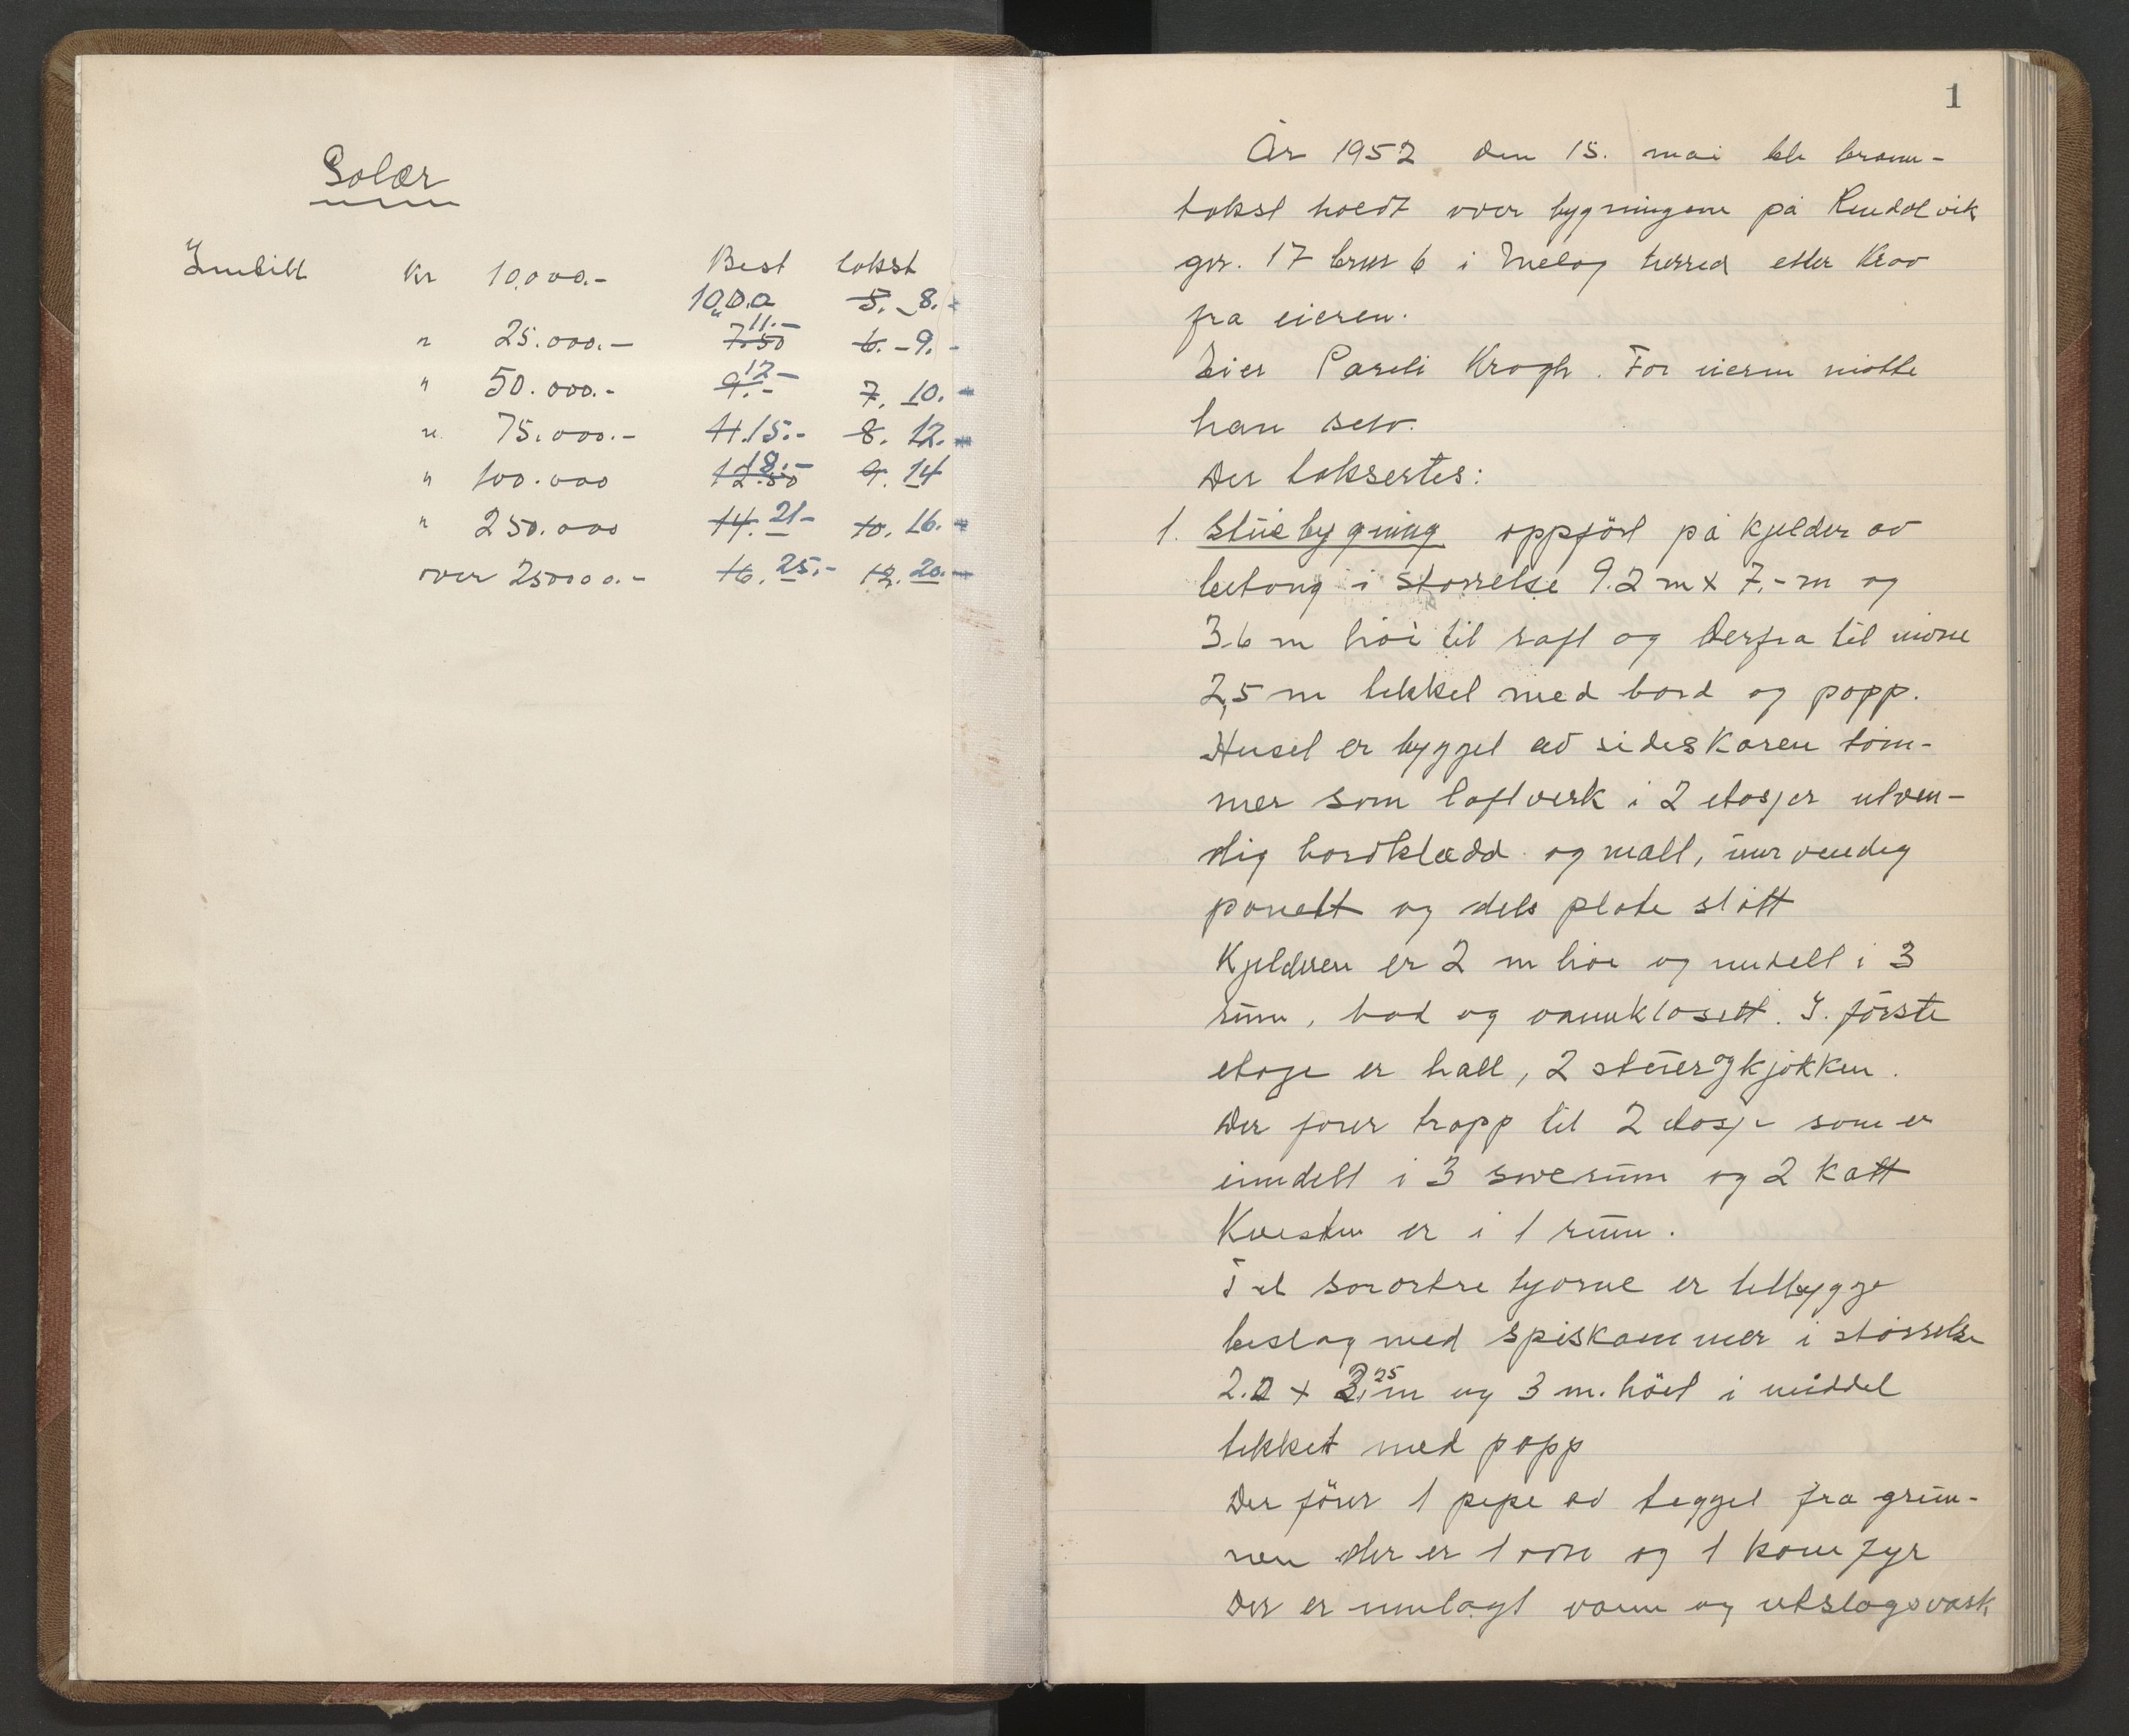 Salær
Inntill kr 10.000.- Best takst
10,0.0 5. 8.-
" 25.000.- 7.50 11.- 6. - 9. -
" 50.000.- 9.- 12.- 7. 10. -
" 75.000.- 11. 15.- 8. 12. -
" 100.000 12.50 18.- 9. 14
" 250.000 14. 21- 10. 16. -
over 250000.- 16. 25.- 12. 20. -
1
År 1952 den 15. mai ble brann-
takst holdt over bygningene på Rindalvik
gnr. 17 brnr 6 i herred etter krav
fra eieren.
Eier Pareli Krogh. For eieren møtte
han selv.
Der taksertes:
1. Stuebygning oppført på kjelder av
betong i størrelse 9.2 m x 7.- m og
3.6 m höi til raft og derfra til møne
2,5 m tekket med bord og papp.
Huset er bygget av sideskåren töm-
mer som laftverk i 2 etasjer utven-
dig bordklædd og malt, innvendig
panelt og dels plate slått
Kjelderen er 2 m høi og inndelt i 3
rum, bad og vannklosett. I. første
etage er hall, 2 stuer og kjøkken.
Der fører trapp til 2 etasje som er
inndelt i 3 soverum og 2 kott
Kvisten er i 1 rum.
Til sørøstre hjørne er tilbygge
beslag med spiskammer i størrelse
2.2 x 3.25 m og 3 m. höit i middel
tekket med papp
Der fører 1 pipe av teggel fra grun-
nen der er 1 ovn og 1 komfyr
Der er innlagt vann og utslagsvask